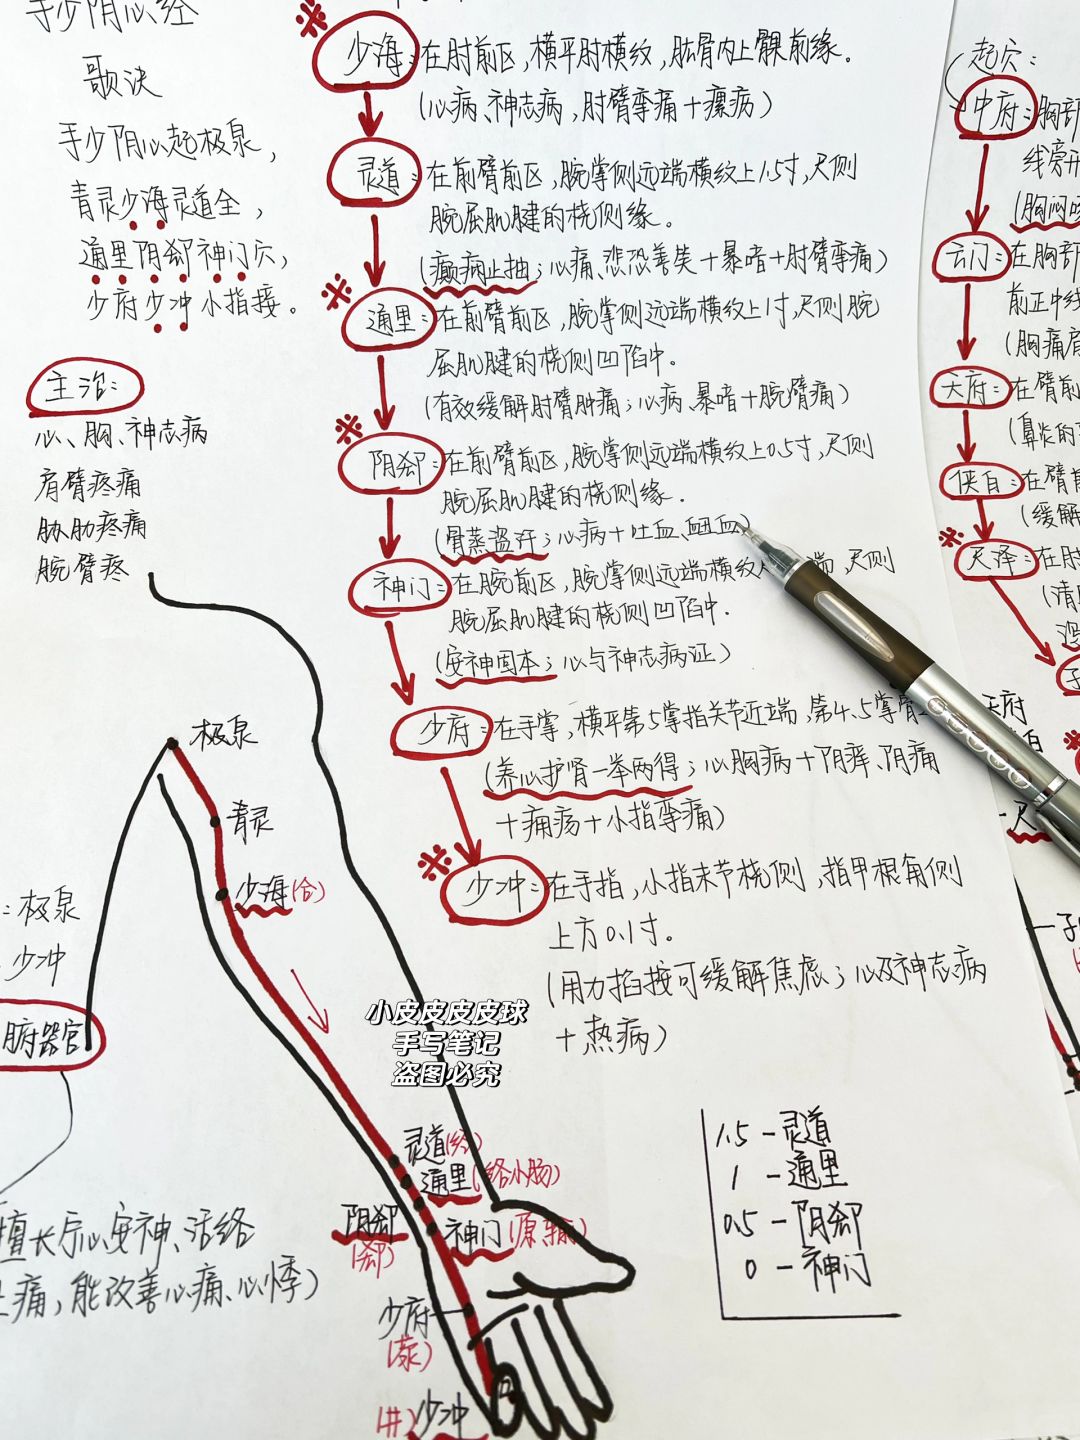 手少阴心经
歌诀
手少阴心起极泉，
青灵少海灵道全，
通里阴郄神门穴，
少府少冲小指接。
主治：
心、胸、神志病
肩臂疼痛
胁肋疼痛
腕臂疼
少海：在肘前区，横平肘横纹，肱骨内上髁前缘。
(心病、神志病，肘臂挛痛＋瘰疬)
灵道：在前臂前区，腕掌侧远端横纹上1.5寸，尺侧
腕屈肌腱的桡侧缘。
(癫痫止抽；心痛、悲恐善笑＋暴喑＋肘臂挛痛)
通里：在前臂前区，腕掌侧远端横纹上1寸，尺侧腕
屈肌腱的桡侧凹陷中.
(有效缓解肘臂肿痛；心病、暴喑＋腕臂痛)
阴郄：在前臂前区，腕掌侧远端横纹上0.5寸，尺侧
腕屈肌腱的桡侧缘.
(骨蒸盗汗；心病＋吐血、衄血)
神门：在腕前区，腕掌侧远端横纹 端，尺侧
腕屈肌腱的桡侧凹陷中.
(安神固本；心与神志病证)
少府：在手掌，横平第5掌指关节近端，第4.5掌骨
(养心护肾一举两得；心胸病＋阴痒、阴痛
＋痈疡＋小指挛痛)
少冲：在手指，小指末节桡侧，指甲根角侧
上方0.1寸。
(用力掐按可缓解焦虑；心及神志病
＋热病)
极泉
青灵
少海(合)
：极泉
少冲
腑器官
小皮皮皮皮球
手写笔记
盗图必究
灵道(经)
通里(络小肠)
阴郄
(郄)
神门(原输)
少府
(荥)
(井)少冲
擅长宁心安神、活络
止痛，能改善心痛、心悸)
1.5－灵道
1－通里
0.5－阴郄
0－神门
起穴：
中府：胸部
线旁开
(胸闷咳
云门：在胸部
前正中线
(胸痛肩
天府：在臂前
(鼻炎的
侠白：在臂前
(缓解
尺泽：在肘
(清
天府
白
尺